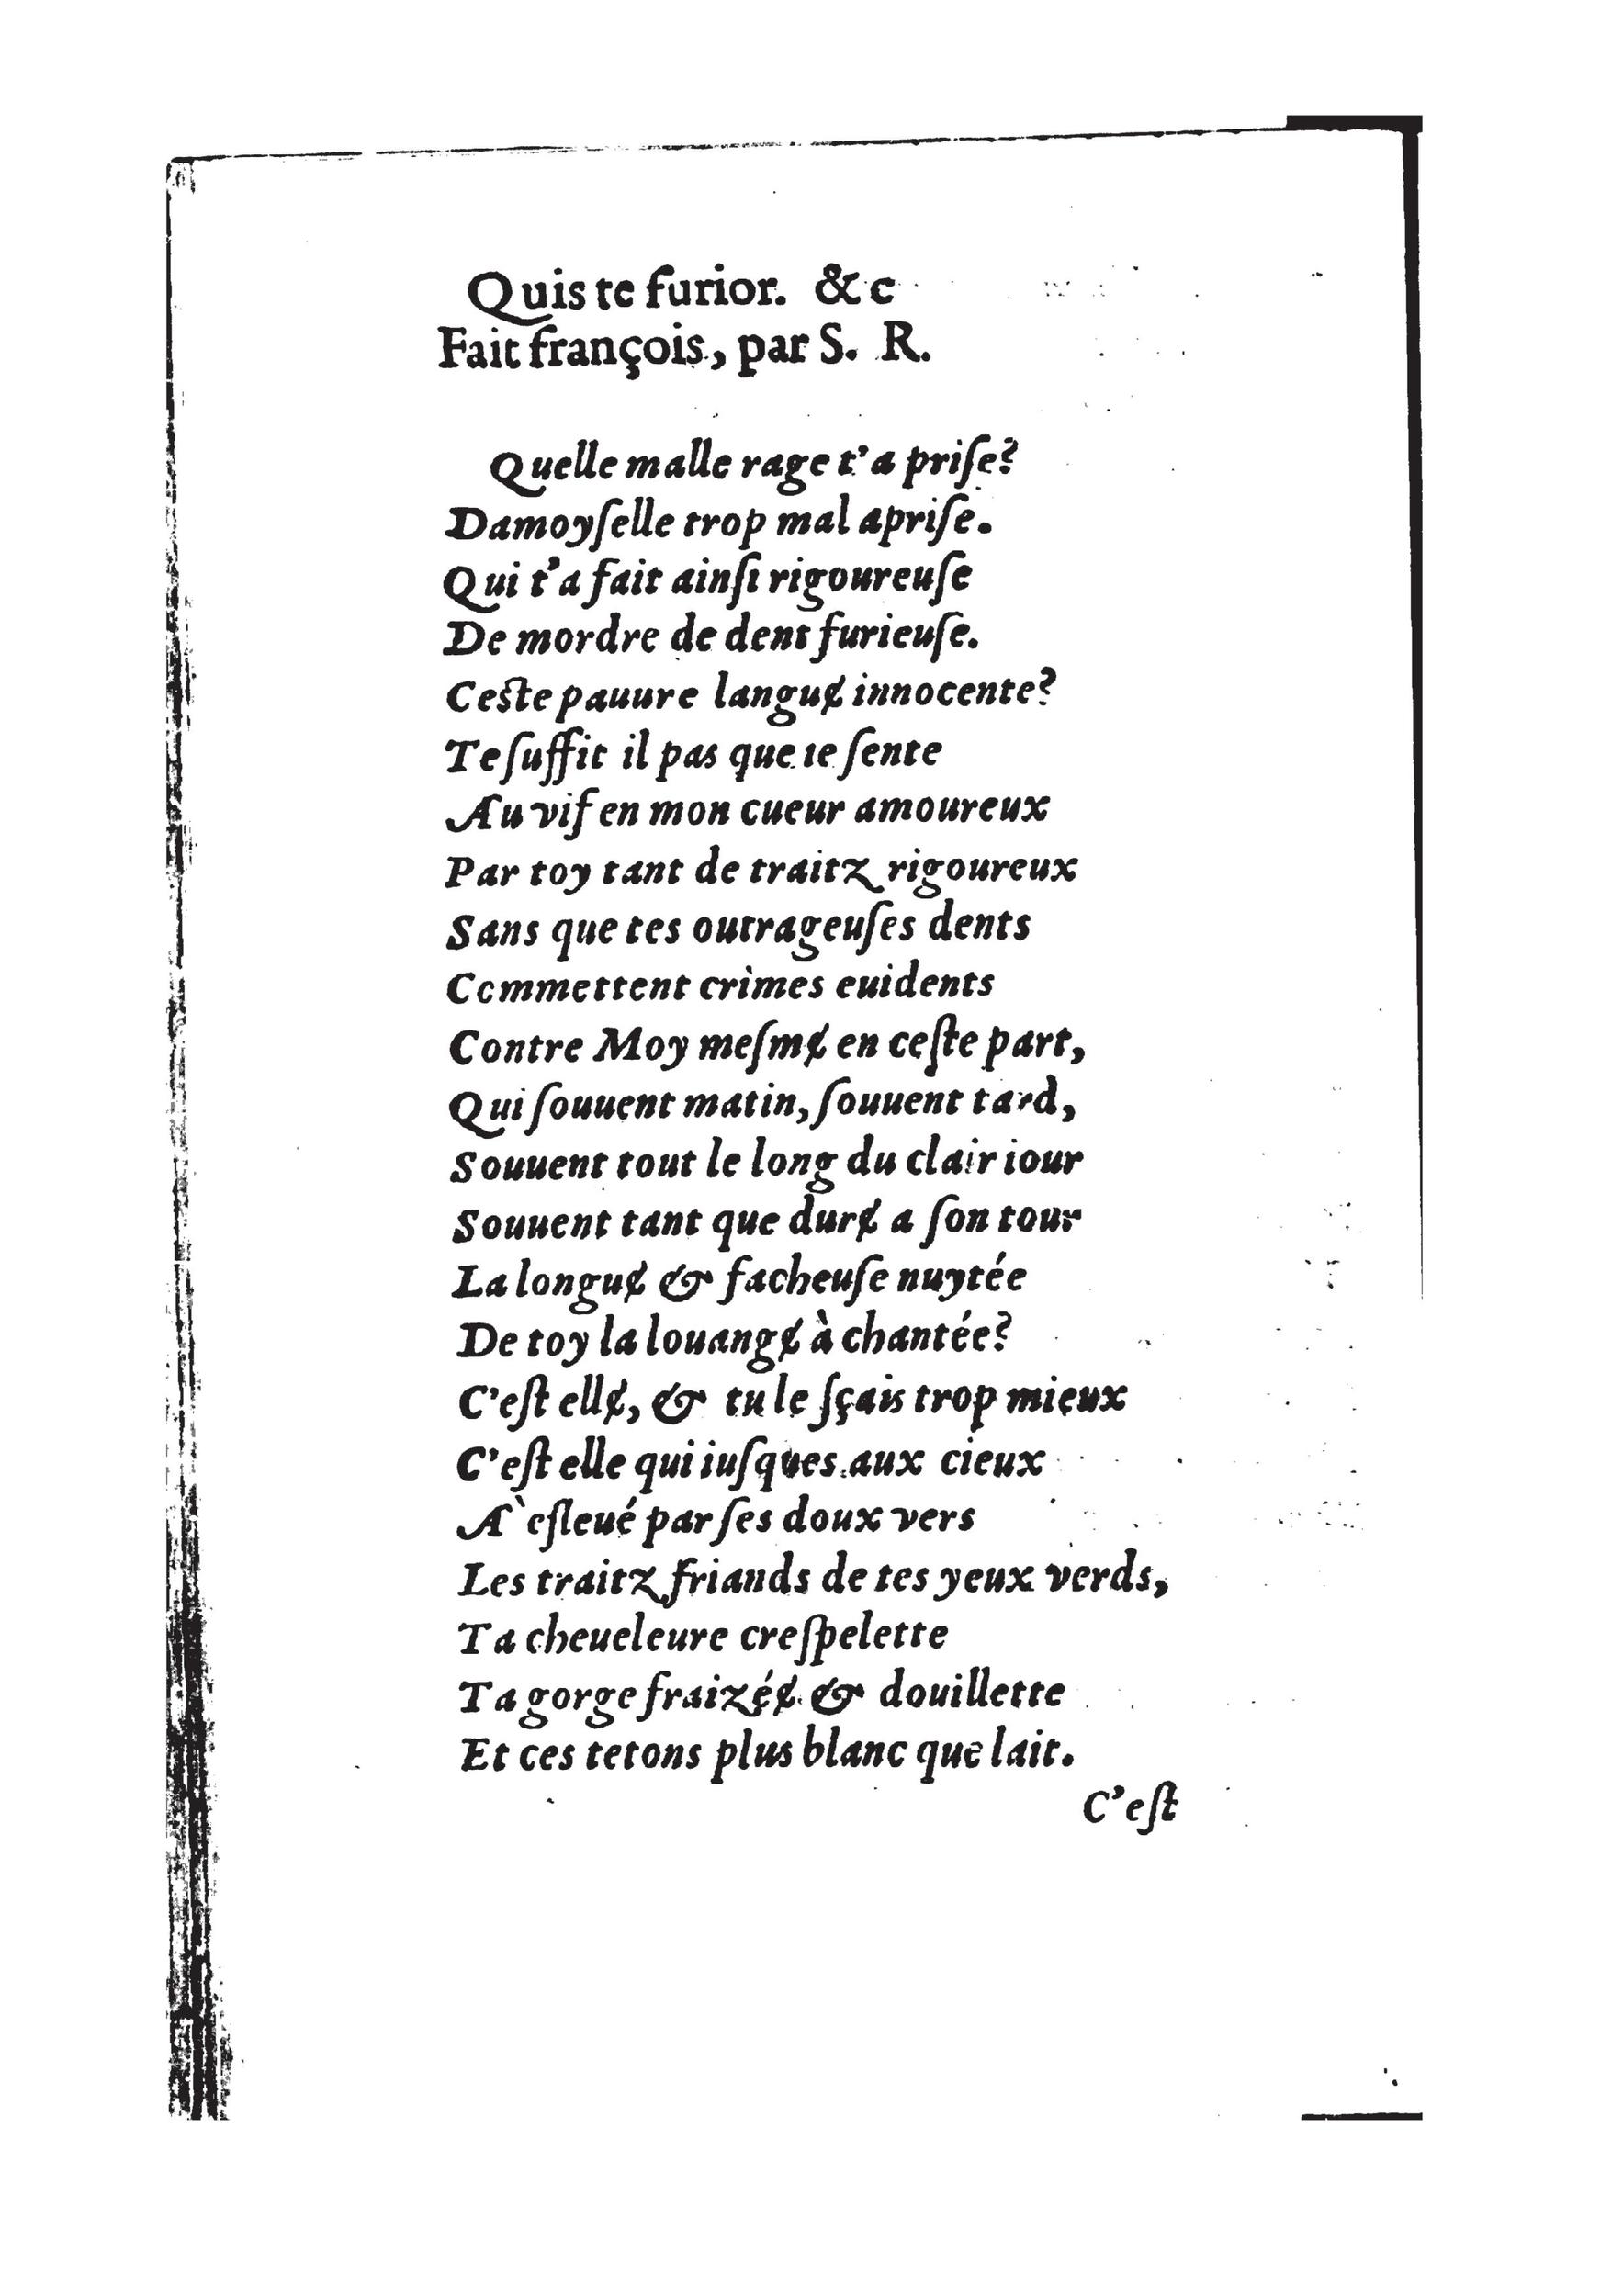 Quis te furior. &c
Fait françois, par S. R.
Quelle malle rage t'a priſe?
Damoyſelle trop mal apriſe.
Qui t'a fait ainſi rigoureuſe
De mordre de dent furieuſe.
Ceſte pauure languɇ innocente?
Te ſuffit il pas que ie ſente
Au vif en mon cueur amoureux
Par toy tant de traitz rigoureux
Sans que tes outrageuſes dents
Commettent crìmes euidents
Contre Moy meſmɇ en ceſte part,
Qui ſouuent matin, ſouuent tard,
Souuent tout le long du clair iour
Souuent tant que durɇ a ſon tour
La longuɇ & facheuſe nuytée
De toy la louangɇ à chantée?
C'eſt ellɇ, & tu le ſçais trop mieux
C'eſt elle qui iuſques aux cieux
A` eſleué par ſes doux vers
Les traitz friands de tes yeux verds,
Ta cheueleure creſpelette
Ta gorge fraizéɇ & douillette
Et ces tetons plus blanc que lait.
C'eſt